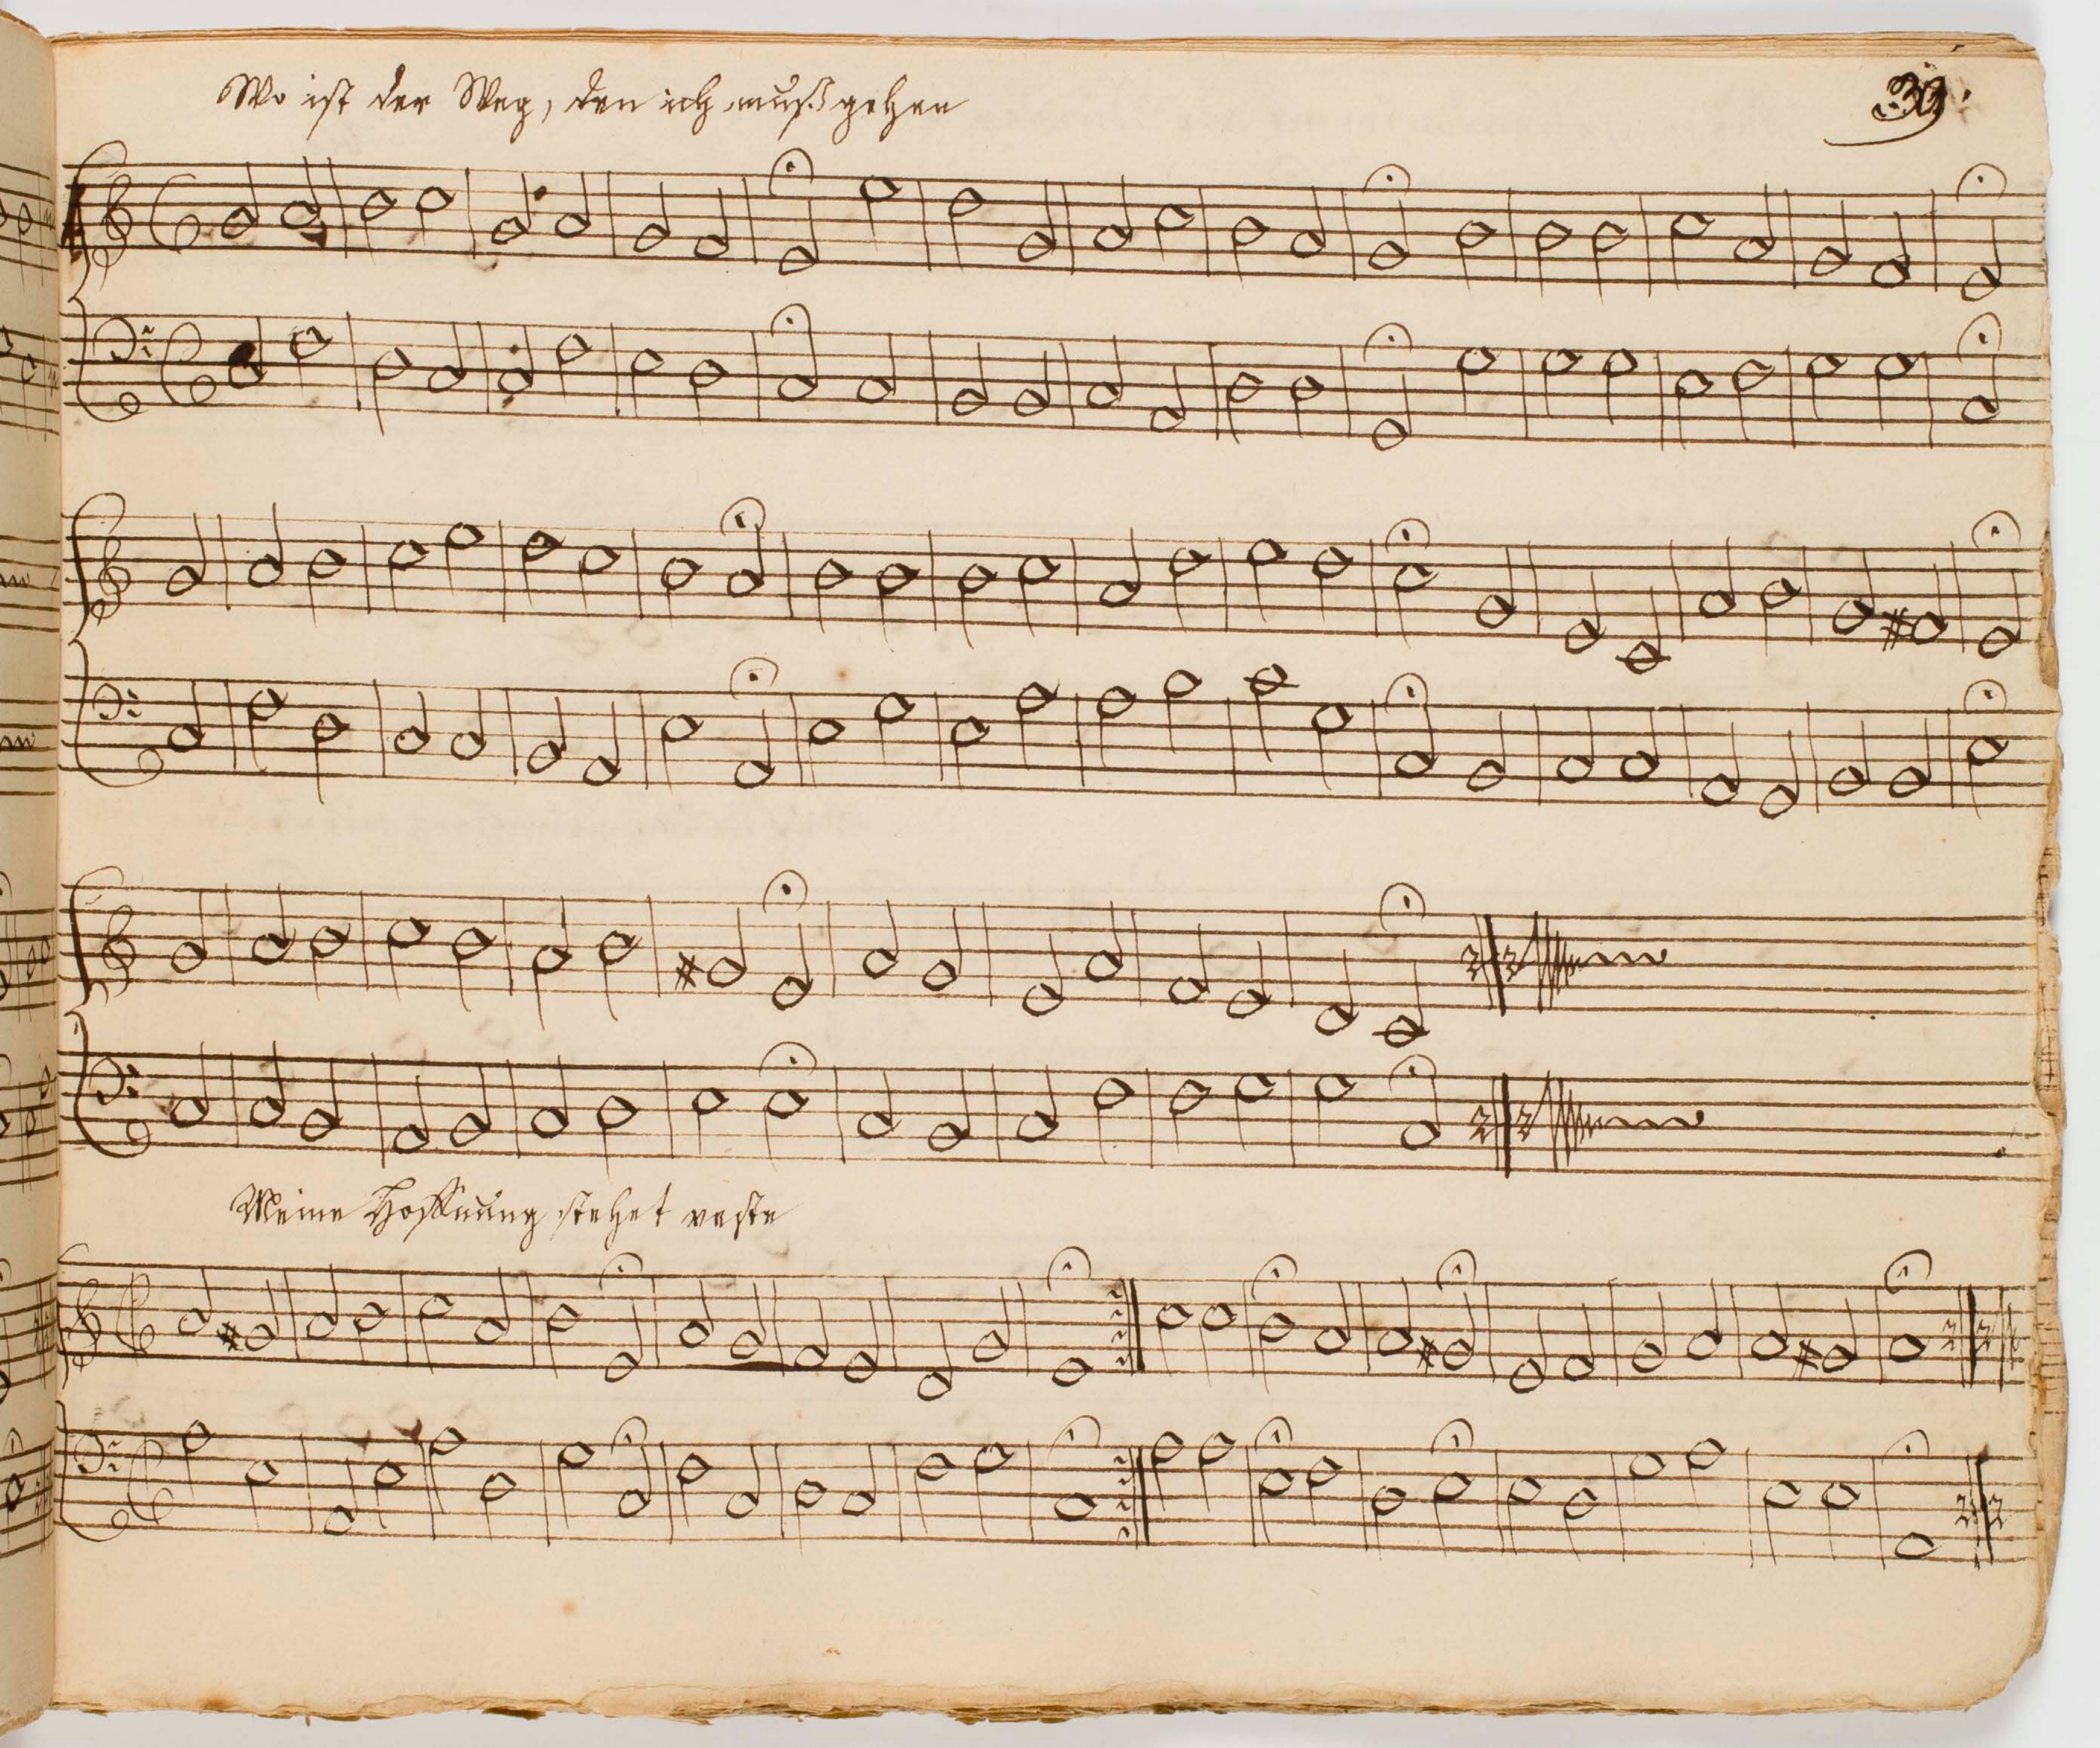 Wo ist der Weg, den ich muß gehen
39.
Meine Hoffnung stehet veste